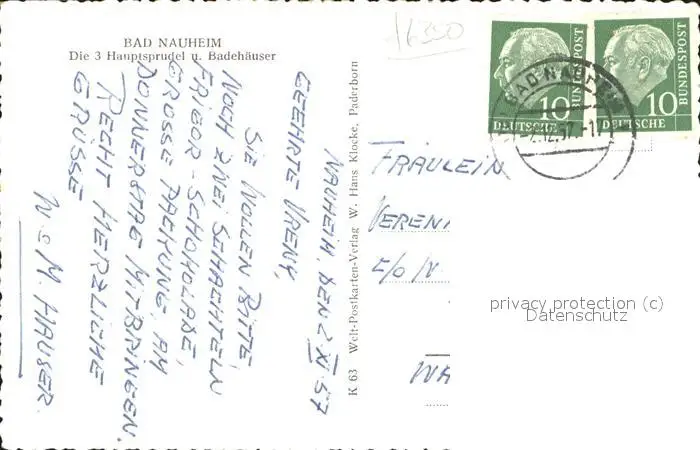 16350
BAD NAUHEIM
Die 3 Hauptsprudel u. Badehäuser
NAUHEIM, DEN 2 XI 57
GEEHRTE VRENY,
SIE WOLLEN BITTE,
NOCH ZWEI SCHACHTELN
FRIGOR-SCHOKOLADE,
GROSSE PACKUNG, AM
DONNERSTAG MITBRINGEN.
RECHT HERZLICHE
GRÜSSE
W & M. HAUSER.
K 63 Welt-Postkarten-Verlag W. Hans Klocke, Paderborn
DEUTSCHE BUNDESPOST
10
DEUTSCHE BUNDESPOST
10
BAD NAUHEIM
FRÄULEIN
VERENI
C/O
WA
privacy protection (c)
Datenschutz